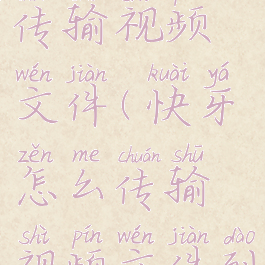 传输视频
wén jiàn kuài yá
文件(快牙
zěn me chuán shū
怎么传输
shì pín wén jiàn dào
视频文件到